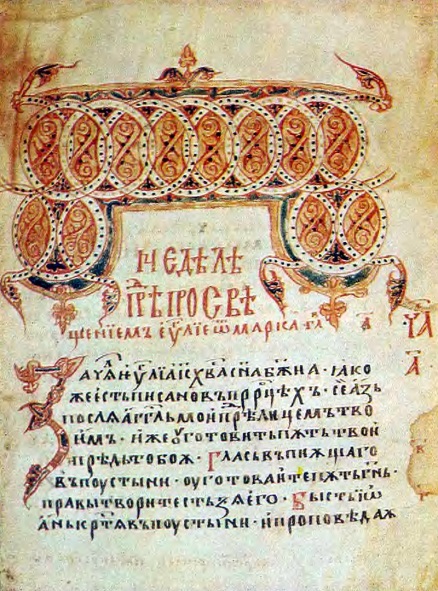 НЕДѢЛѢ
ПРѢПРОСВѢ
ЩЕНІЕМЪ ЕУЛІЕ Ѿ МАРКА ГЛ А
ЗАЧѦЛ ЕУЛІА ІС ХВА СНА БЖИꙖ · ІАКО
ЖЕ ІЕСТЬ ПИСАНО ВЪ ПРРЦѢХЪ · СЕ АЗЬ
ПОСЛЮ АГГЛЬ МОИ ПРѢД ЛИЦЕМЪ ТВО
ИМЪ · ИЖЕ ОУГОТОВИТЬ ПѪТЬ ТВОИ
ПРѢДЪ ТОБОѪ · ГЛАСЬ ВЪПИѬЩАГО
ВЪ ПОУСТЫНИ · ОУГОТОВАИТЕ ПѪТЬ ГНЬ ·
ПРАВЫ ТВОРИТЕ СТЬЗѦ ЕГО · БЫСТЬ ІѠ
АНЬ КРТѦ ВЪ ПОУСТЫНИ · И ПРОПОВѢДАѪ